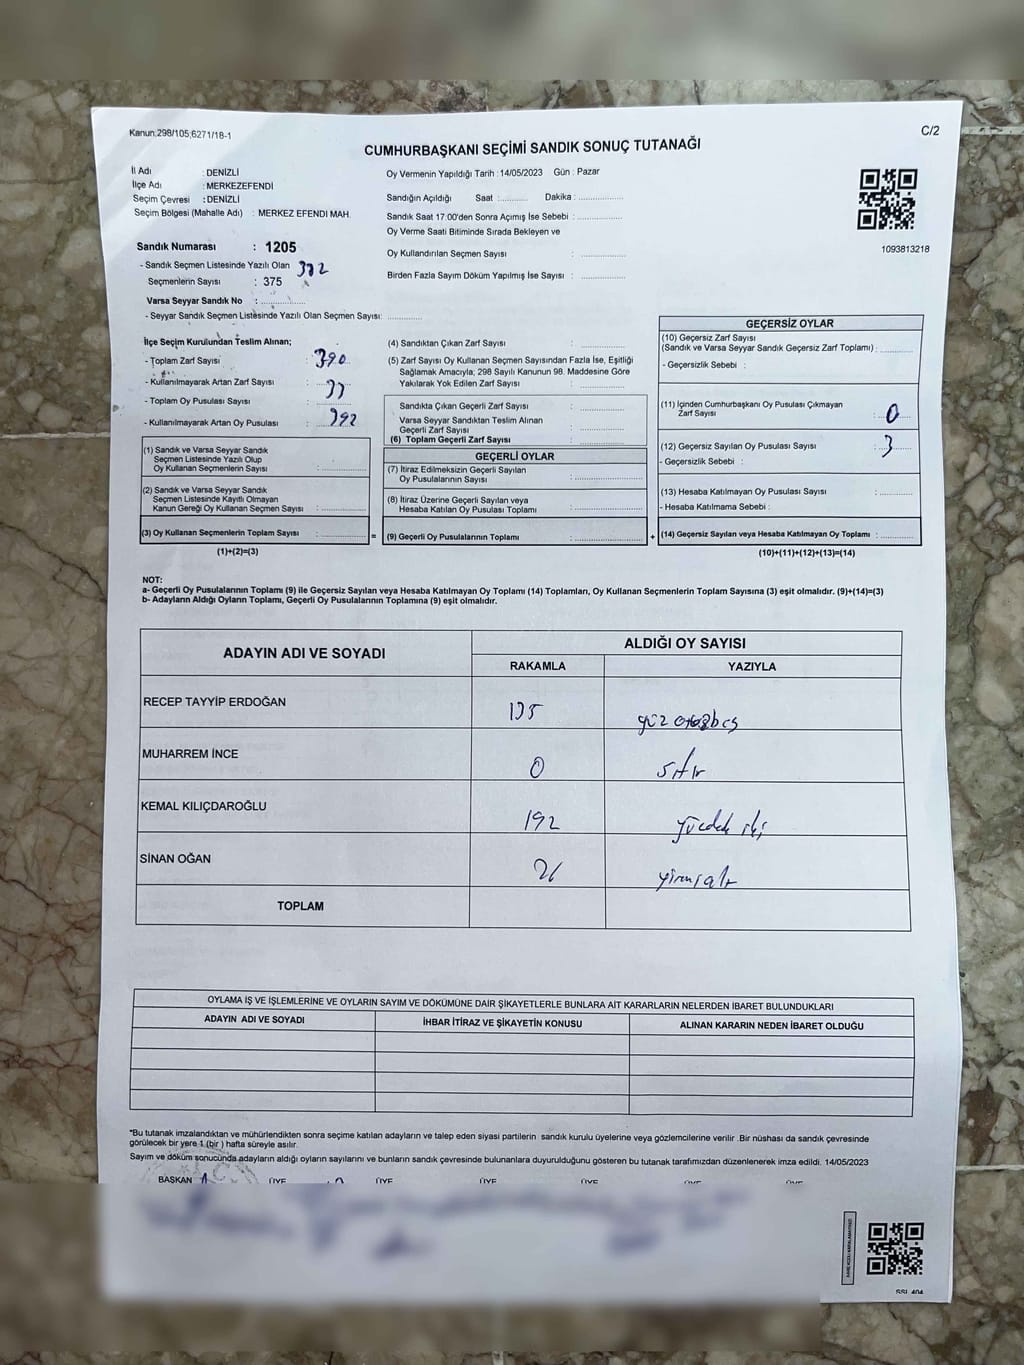 Kanun:298/105;6271/18-1
C/2
CUMHURBAŞKANI SEÇİMİ SANDIK SONUÇ TUTANAĞI
İl Adı : DENİZLİ
İlçe Adı : MERKEZEFENDİ
Seçim Çevresi : DENİZLİ
Seçim Bölgesi (Mahalle Adı) : MERKEZ EFENDİ MAH.
Sandık Numarası : 1205
- Sandık Seçmen Listesinde Yazılı Olan
Seçmenlerin Sayısı : 375
Varsa Seyyar Sandık No : ............
- Seyyar Sandık Seçmen Listesinde Yazılı Olan Seçmen Sayısı: ............
Oy Vermenin Yapıldığı Tarih : 14/05/2023 Gün : Pazar
Sandığın Açıldığı Saat :.......... Dakika :..............
Sandık Saat 17:00'den Sonra Açımış İse Sebebi :..............
Oy Verme Saati Bitiminde Sırada Bekleyen ve
Oy Kullandırılan Seçmen Sayısı : ..............
Birden Fazla Sayım Döküm Yapılmış İse Sayısı : ..............
1093813218
İlçe Seçim Kurulundan Teslim Alınan;
- Toplam Zarf Sayısı : 390
- Kullanılmayarak Artan Zarf Sayısı :
- Toplam Oy Pusulası Sayısı :
- Kullanılmayarak Artan Oy Pusulası : 392
(1) Sandık ve Varsa Seyyar Sandık
Seçmen Listesinde Yazılı Olup
Oy Kullanan Seçmenlerin Sayısı :..............
(2) Sandık ve Varsa Seyyar Sandık
Seçmen Listesinde Kayıtlı Olmayan
Kanun Gereği Oy Kullanan Seçmen Sayısı :..............
(3) Oy Kullanan Seçmenlerin Toplam Sayısı :.............. =
(1)+(2)=(3)
(4) Sandıktan Çıkan Zarf Sayısı : ..............
(5) Zarf Sayısı Oy Kullanan Seçmen Sayısından Fazla İse, Eşitliği
Sağlamak Amacıyla; 298 Sayılı Kanunun 98. Maddesine Göre
Yakılarak Yok Edilen Zarf Sayısı : ..............
Sandıkta Çıkan Geçerli Zarf Sayısı : ..............
Varsa Seyyar Sandıktan Teslim Alınan
Geçerli Zarf Sayısı : ..............
(6) Toplam Geçerli Zarf Sayısı : ..............
GEÇERLİ OYLAR
(7) İtiraz Edilmeksizin Geçerli Sayılan
Oy Pusulalarının Sayısı :..............
(8) İtiraz Üzerine Geçerli Sayılan veya
Hesaba Katılan Oy Pusulası Toplamı :..............
(9) Geçerli Oy Pusulalarının Toplamı :.............. +
GEÇERSİZ OYLAR
(10) Geçersiz Zarf Sayısı
(Sandık ve Varsa Seyyar Sandık Geçersiz Zarf Toplamı) :..........
- Geçersizlik Sebebi :
(11) İçinden Cumhurbaşkanı Oy Pusulası Çıkmayan
Zarf Sayısı : 0
(12) Geçersiz Sayılan Oy Pusulası Sayısı : 3
- Geçersizlik Sebebi :
(13) Hesaba Katılmayan Oy Pusulası Sayısı :..........
- Hesaba Katılmama Sebebi :
(14) Geçersiz Sayılan veya Hesaba Katılmayan Oy Toplamı :..........
(10)+(11)+(12)+(13)=(14)
NOT:
a- Geçerli Oy Pusulalarının Toplamı (9) ile Geçersiz Sayılan veya Hesaba Katılmayan Oy Toplamı (14) Toplamları, Oy Kullanan Seçmenlerin Toplam Sayısına (3) eşit olmalıdır. (9)+(14)=(3)
b- Adayların Aldığı Oyların Toplamı, Geçerli Oy Pusulalarının Toplamına (9) eşit olmalıdır.
ADAYIN ADI VE SOYADI
ALDIĞI OY SAYISI
RAKAMLA YAZIYLA
RECEP TAYYİP ERDOĞAN 135
MUHARREM İNCE 0 sıfır
KEMAL KILIÇDAROĞLU 192
SİNAN OĞAN 26 yirmialtı
TOPLAM
OYLAMA İŞ VE İŞLEMLERİNE VE OYLARIN SAYIM VE DÖKÜMÜNE DAİR ŞİKAYETLERLE BUNLARA AİT KARARLARIN NELERDEN İBARET BULUNDUKLARI
ADAYIN ADI VE SOYADI İHBAR İTİRAZ VE ŞİKAYETİN KONUSU ALINAN KARARIN NEDEN İBARET OLDUĞU
*Bu tutanak imzalandıktan ve mühürlendikten sonra seçime katılan adayların ve talep eden siyasi partilerin sandık kurulu üyelerine veya gözlemcilerine verilir .Bir nüshası da sandık çevresinde
görülecek bir yere 1 (bir) hafta süreyle asılır.
Sayım ve döküm sonucunda adayların aldığı oyların sayılarını ve bunların sandık çevresinde bulunanlara duyurulduğunu gösteren bu tutanak tarafımızdan düzenlenerek imza edildi. 14/05/2023
BAŞKAN ÜYE ÜYE ÜYE ÜYE ÜYE ÜYE